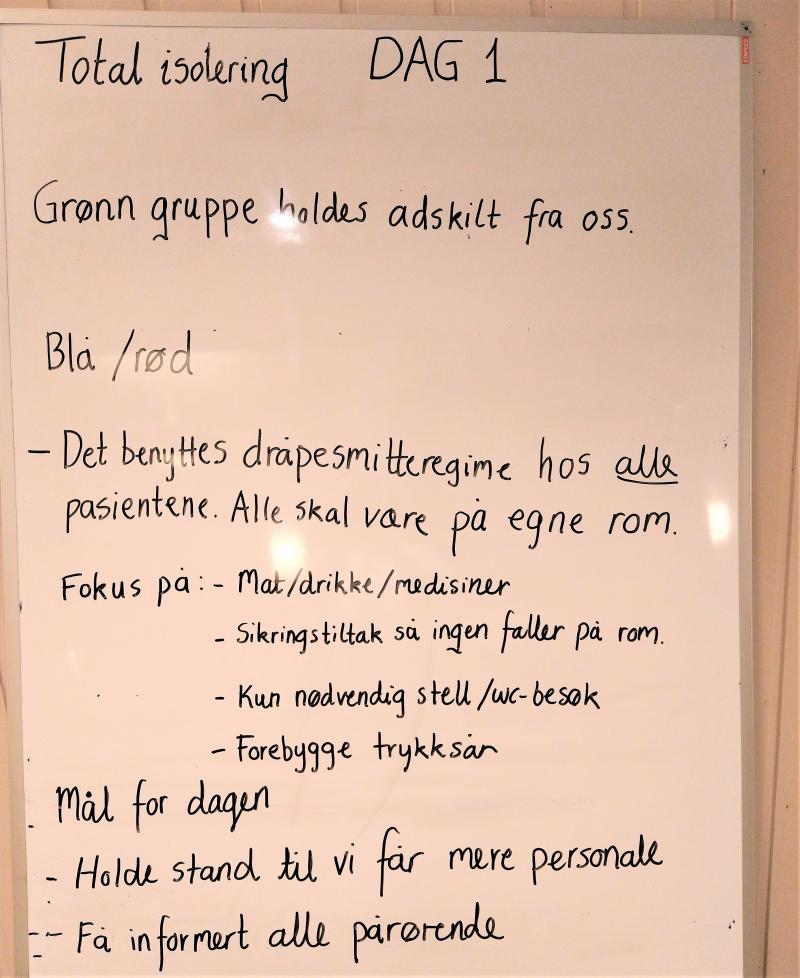 Total isolering DAG 1
Grønn gruppe holdes adskilt fra oss.
Blå /rød
- Det benyttes dråpesmitteregime hos alle
pasientene. Alle skal være på egne rom.
Fokus på: - Mat/drikke/medisiner
- Sikringstiltak så ingen faller på rom.
- Kun nødvendig stell/wc-besøk
- Forebygge trykksår
Mål for dagen
- Holde stand til vi får mere personale
- Få informert alle pårørende